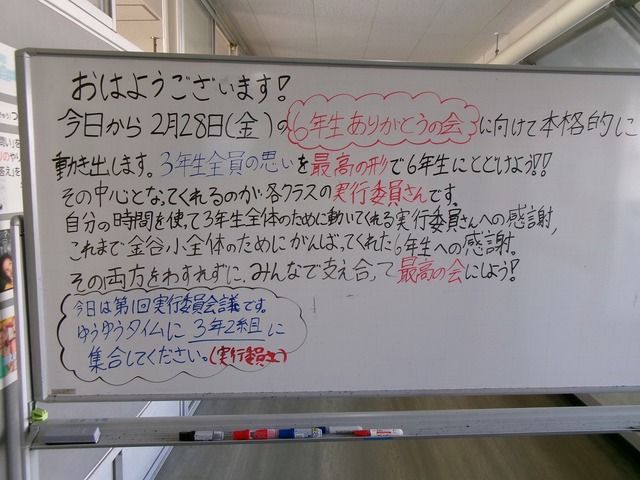 おはようございます!
今日から2月28日(金)の6年生ありがとうの会に向けて本格的に
動き出します。3年生全員の思いを最高の形で6年生にとどけよう!!
その中心となってくれるのが各クラスの実行委員さんです。
自分の時間を使って3年生全体のために動いてくれる実行委員さんへの感謝、
これまで金谷小全体のためにがんばってくれた6年生への感謝。
その両方をわすれずに、みんなで支え合って最高の会にしよう!
今日は第1回実行委員会議です。
ゆうゆうタイムに3年2組に
集合してください。(実行委員さん)